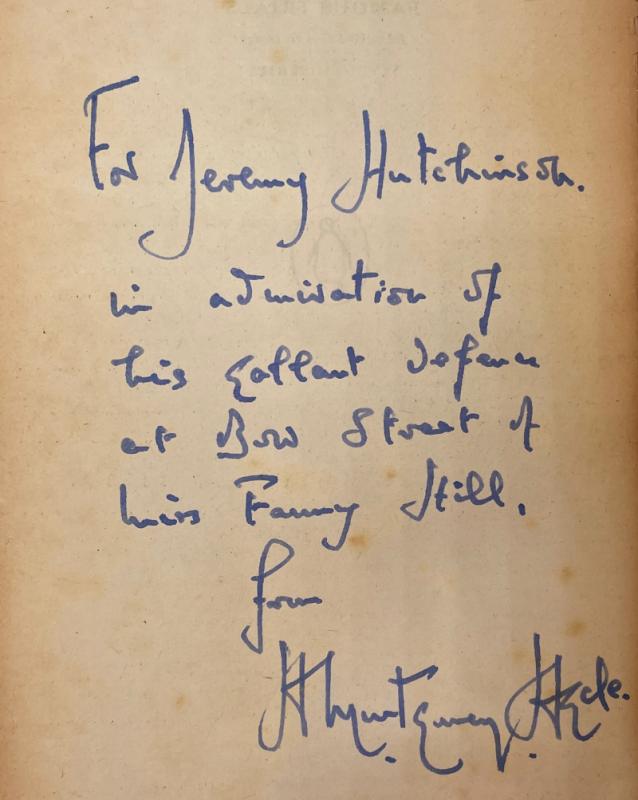 For Jeremy Hutchinson.
in admiration of
his gallant defence
at Bow Street of
Miss Fanny Hill.
from
H. Montgomery Hyde.